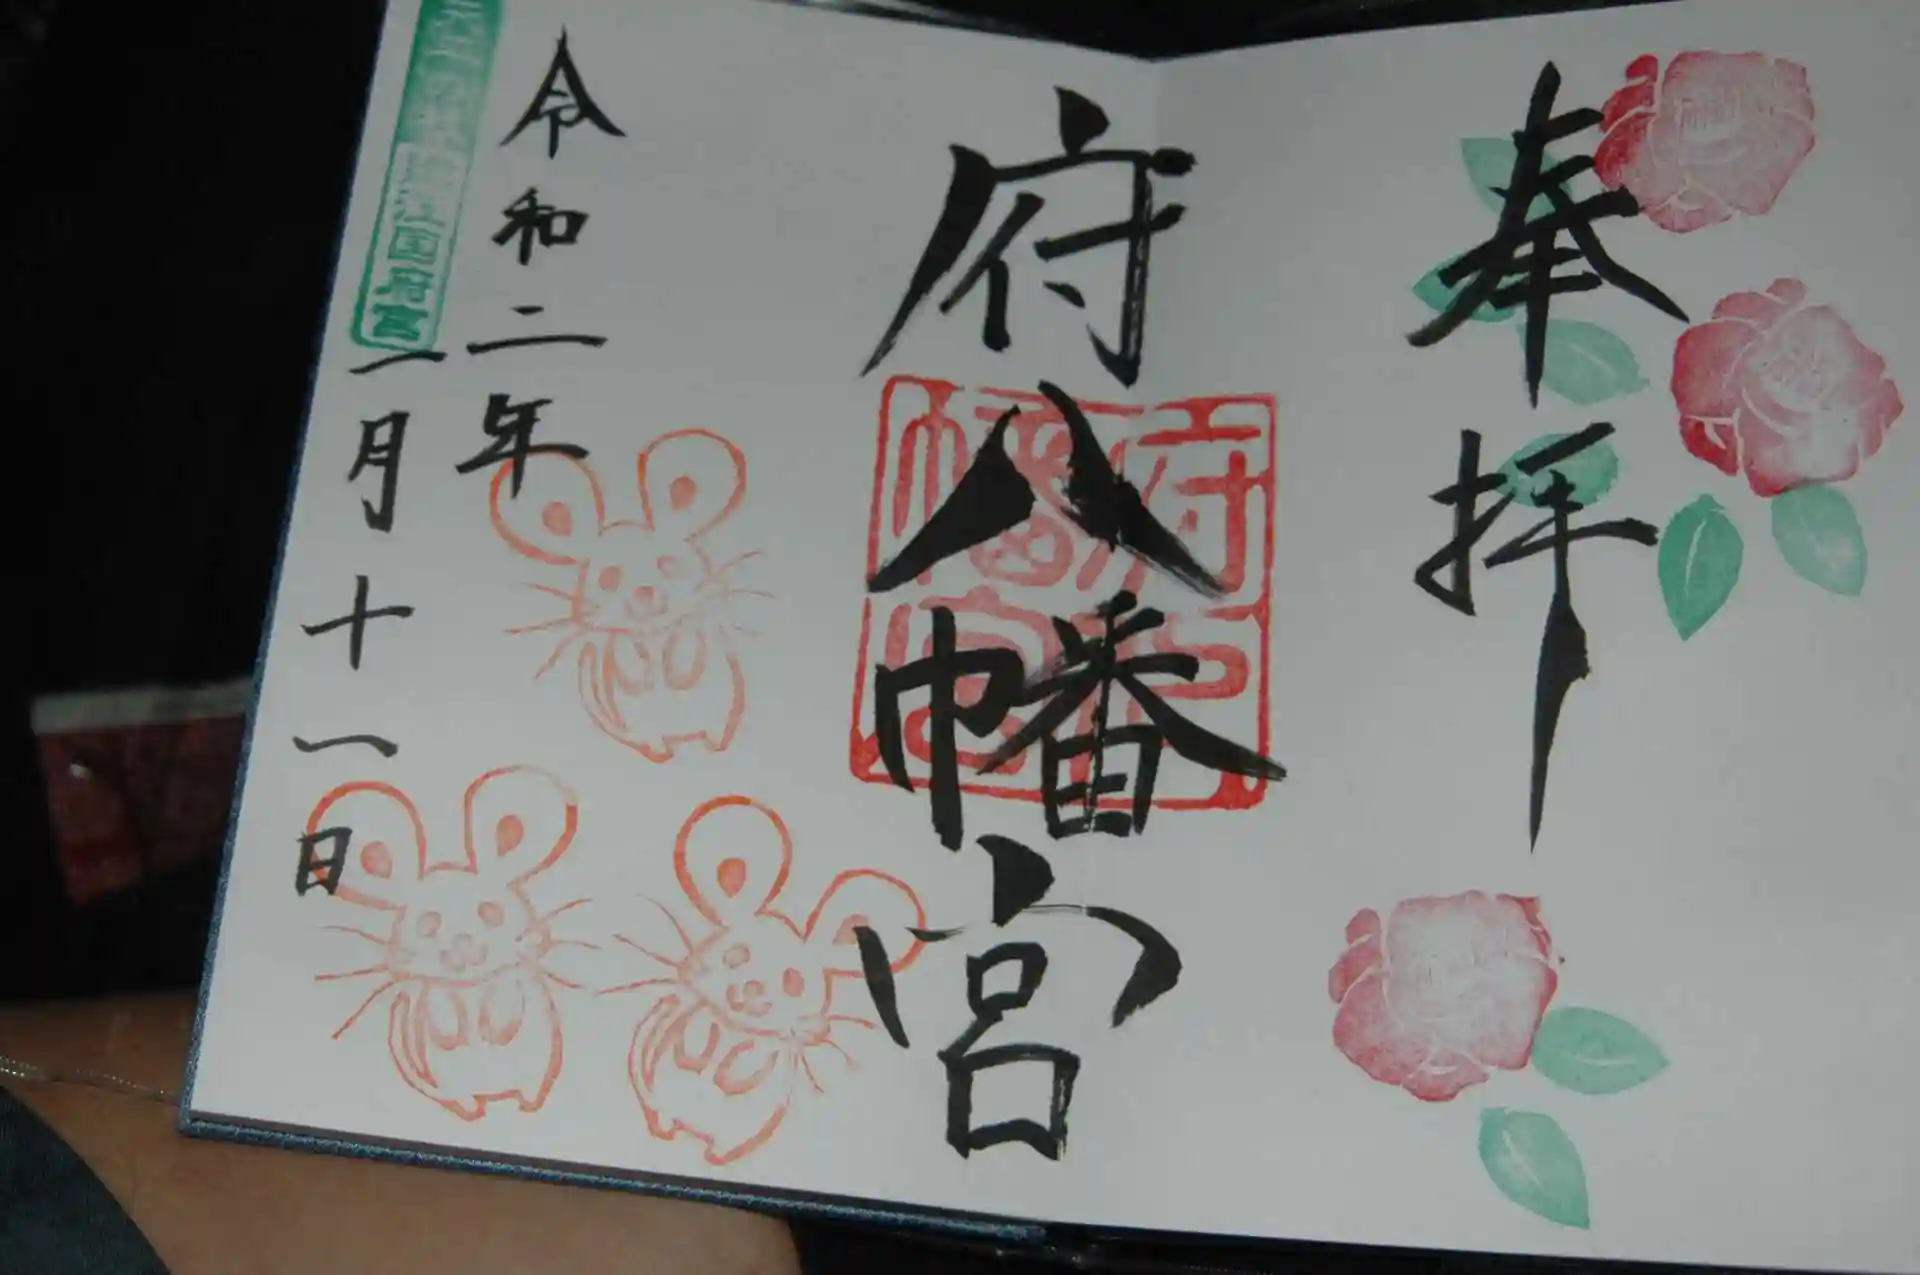 奉拝
府八幡宮
府八
幡宮
令和二年
一月十一日
国府宮